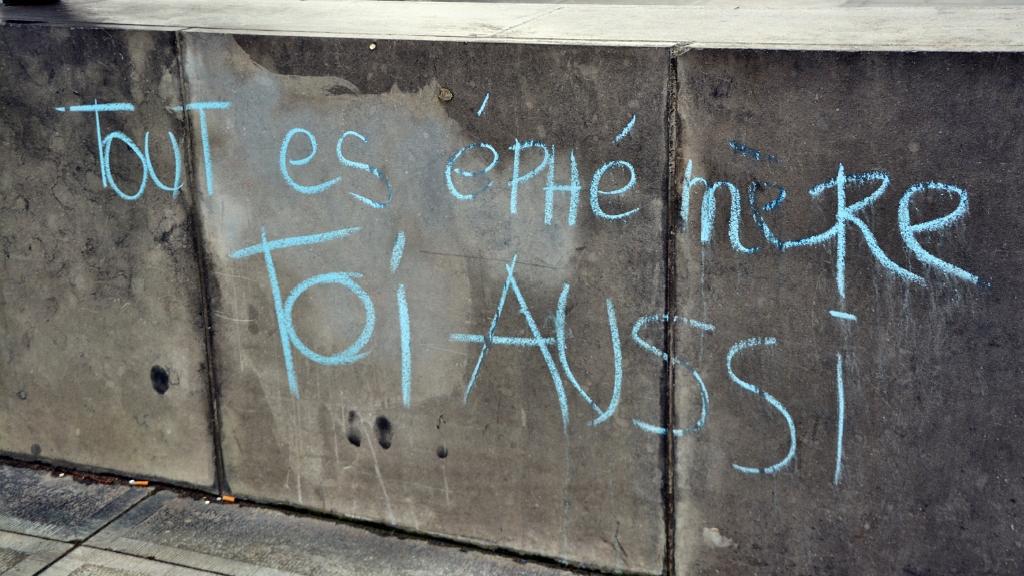 TOUT es éPHémèRe
TOi AUSSi